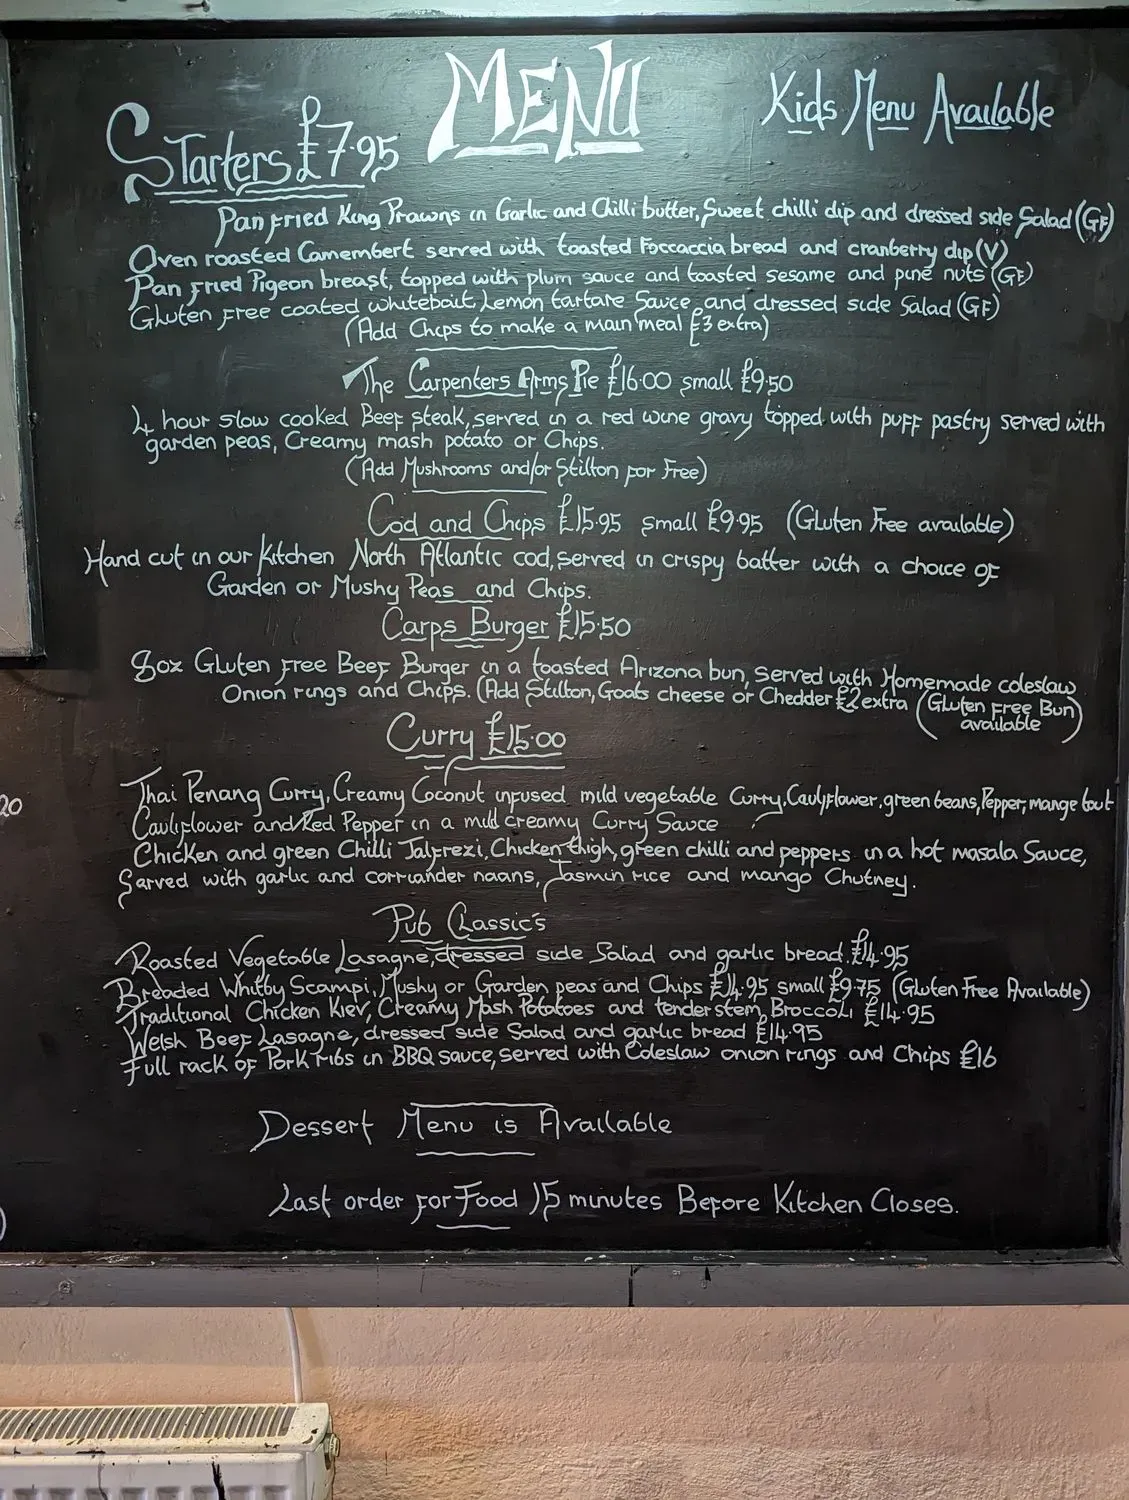 MENU
Kids Menu Available
Starters £7.95
Pan fried King Prawns in Garlic and Chilli butter, Sweet chilli dip and dressed side Salad (GF)
Oven roasted Camembert served with toasted Foccaccia bread and cranberry dip (V)
Pan fried Pigeon breast, topped with plum sauce and toasted sesame and pine nuts (GF)
Gluten free coated whitebait, Lemon tartare Sauce and dressed side Salad (GF)
(Add Chips to make a main meal £3 extra)
The Carpenters Arms Pie £16.00 small £9.50
4 hour slow cooked Beef steak, served in a red wine gravy topped with puff pastry served with
garden peas, Creamy mash potato or Chips.
(Add Mushrooms and/or Stilton for Free)
Cod and Chips £15.95 small £9.95 (Gluten Free available)
Hand cut in our kitchen North Atlantic cod, served in crispy batter with a choice of
Garden or Mushy Peas and Chips.
Carps Burger £15.50
8oz Gluten free Beef Burger in a toasted Arizona bun, served with Homemade coleslaw
Onion rings and Chips. (Add Stilton, Goats cheese or Chedder £2 extra (Gluten Free Bun
available)
Curry £15.00
Thai Penang Curry, Creamy Coconut infused mild vegetable Curry, Cauliflower, green beans, Pepper, mange tout
20
Cauliflower and Red Pepper in a mild creamy Curry Sauce
Chicken and green Chilli Jalfrezi, Chicken thigh, green chilli and peppers in a hot masala Sauce,
Served with garlic and corriander naans, Jasmin rice and mango Chutney.
Pub Classic's
Roasted Vegetable Lasagne, dressed side Salad and garlic bread £14.95
Breaded Whitby Scampi, Mushy or Garden peas and Chips £14.95 small £9.75 (Gluten Free Available)
Traditional Chicken Kiev, Creamy Mash Potatoes and tenderstem Broccoli £14.95
Welsh Beef Lasagne, dressed side Salad and garlic bread £14.95
Full rack of Pork ribs in BBQ sauce, served with Coleslaw onion rings and Chips £16
Dessert Menu is Available
Last order for Food 15 minutes Before Kitchen Closes.